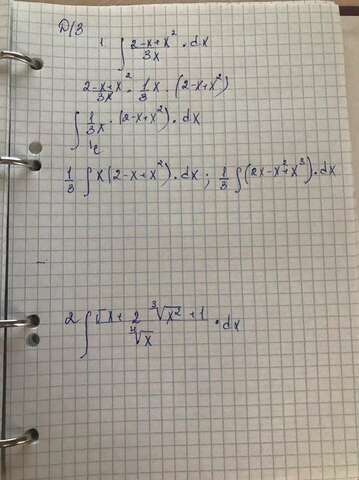 Д/З
1 ∫ (2-x+x²)/(3x) · dx
(2-x+x²)/(3x) = 1/3 x · (2-x+x²)
∫ 1/3 x · (2-x+x²) · dx
1/3 ∫ x(2-x+x²) · dx ; 1/3 ∫ (2x-x²+x³) · dx
2 ∫ (√x + 2 ∛x² + 1)/(∜x) · dx